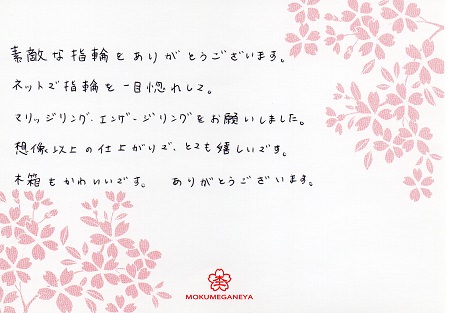 素敵な指輪をありがとうございます。
ネットで指輪を一目惚れして。
マリッジリング、エンゲージリングをお願いしました。
想像以上の仕上がりで、とても嬉しいです。
木箱もかわいいです。　ありがとうございます。
MOKUMEGANEYA